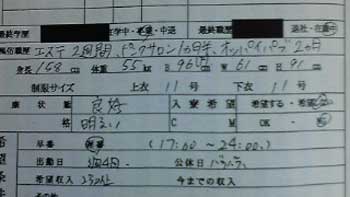 最終学歴 在学中・卒業・中退 最終職歴 退社・在
風俗職歴 エステ2週間、ピンクサロン1カ月半、オッパイパブ2カ月
身長 158 cm 体重 55 kg B 96 W 61 H 91
制服サイズ 上衣 11 号 下衣 11 号
康状態 良好 入寮希望 希望する・
格 明るい C M OK・
早番 (17:00 ~ 24:00)
出勤日 週4日 公休日 バラバラ
希望収入 今までの収入
その他